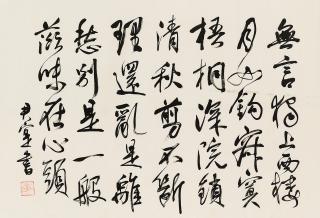 無言獨上西樓
月如鉤寂寞
梧桐深院鎖
清秋剪不斷
理還亂是離
愁別是一般
滋味在心頭